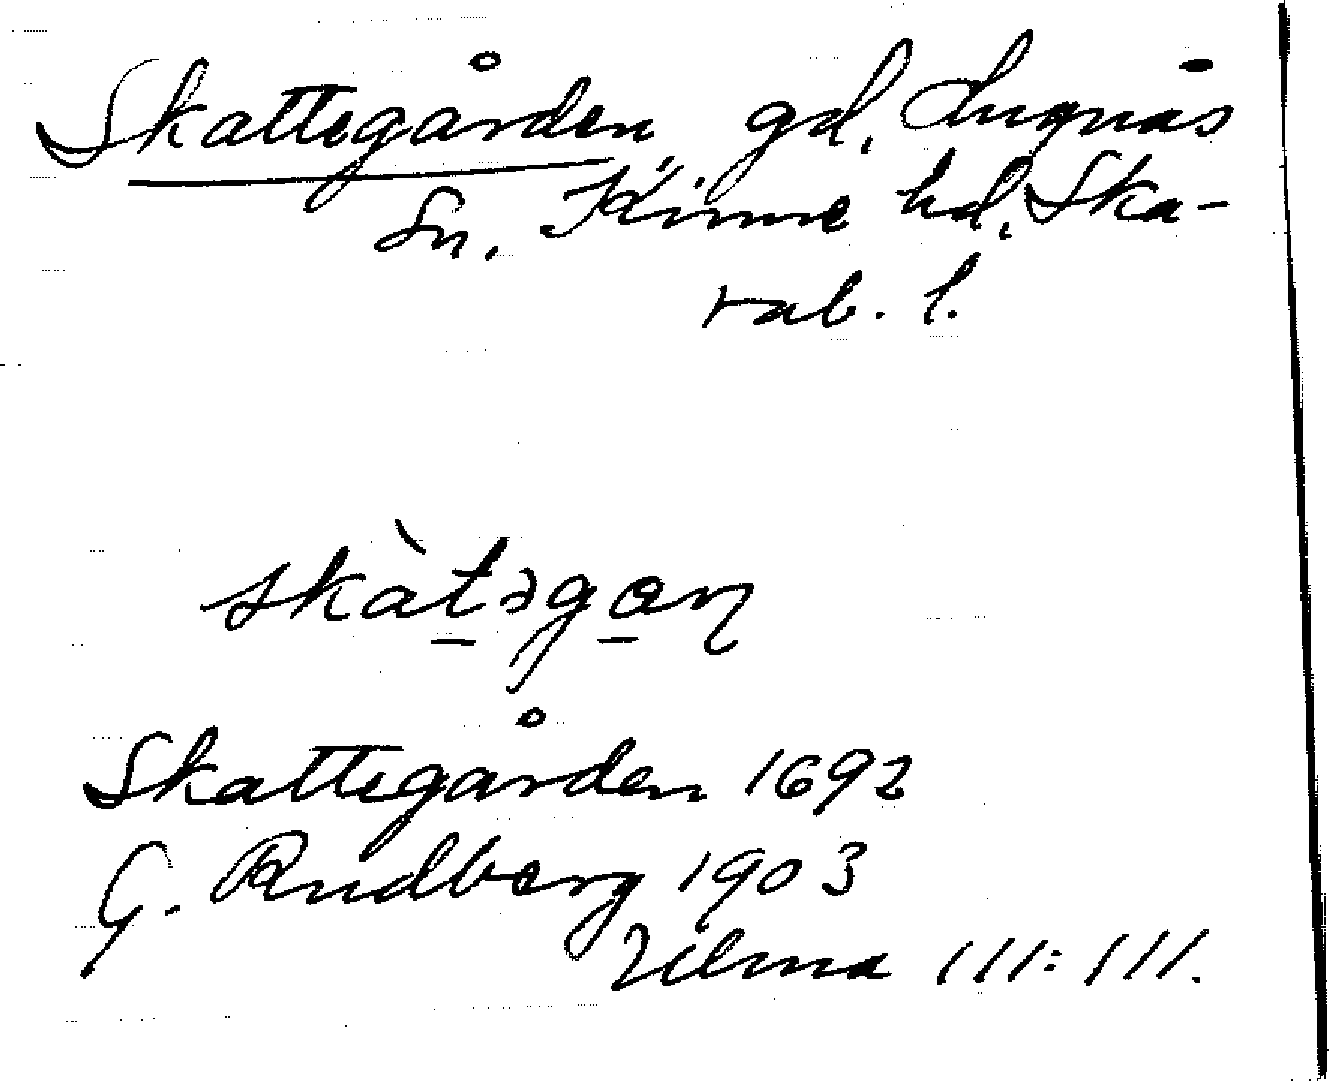 Skattegården, gd, Lugnås
Sn. Kinne hd, Ska-
rab. l.
skàt̲əga̲ɳ
Skattegården 1692
G. Rudberg 1903
Vilma 111:111.